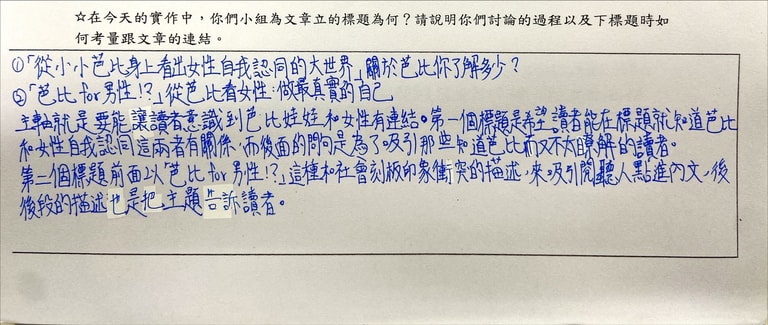 ☆在今天的實作中，你們小組為文章立的標題為何？請說明你們討論的過程以及下標題時如
何考量跟文章的連結。
①「從小小芭比身上看出女性自我認同的大世界」關於芭比你了解多少？
②「芭比for男性!?」從芭比看女性:做最真實的自己
主軸就是要能讓讀者意識到芭比娃娃和女性有連結。第一個標題是希望讀者能在標題就知道芭比
和女性自我認同這兩者有關係，而後面的問句是為了吸引那些知道芭比而又不太瞭解的讀者。
第二個標題前面以「芭比for男性!?」這種和社會刻板印象衝突的描述，來吸引閱聽人點進內文，後
後段的描述也是把主題告訴讀者。